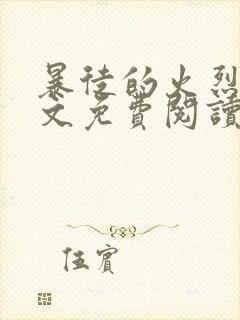 暴徒的火烈
文免費閱讀
伍賓